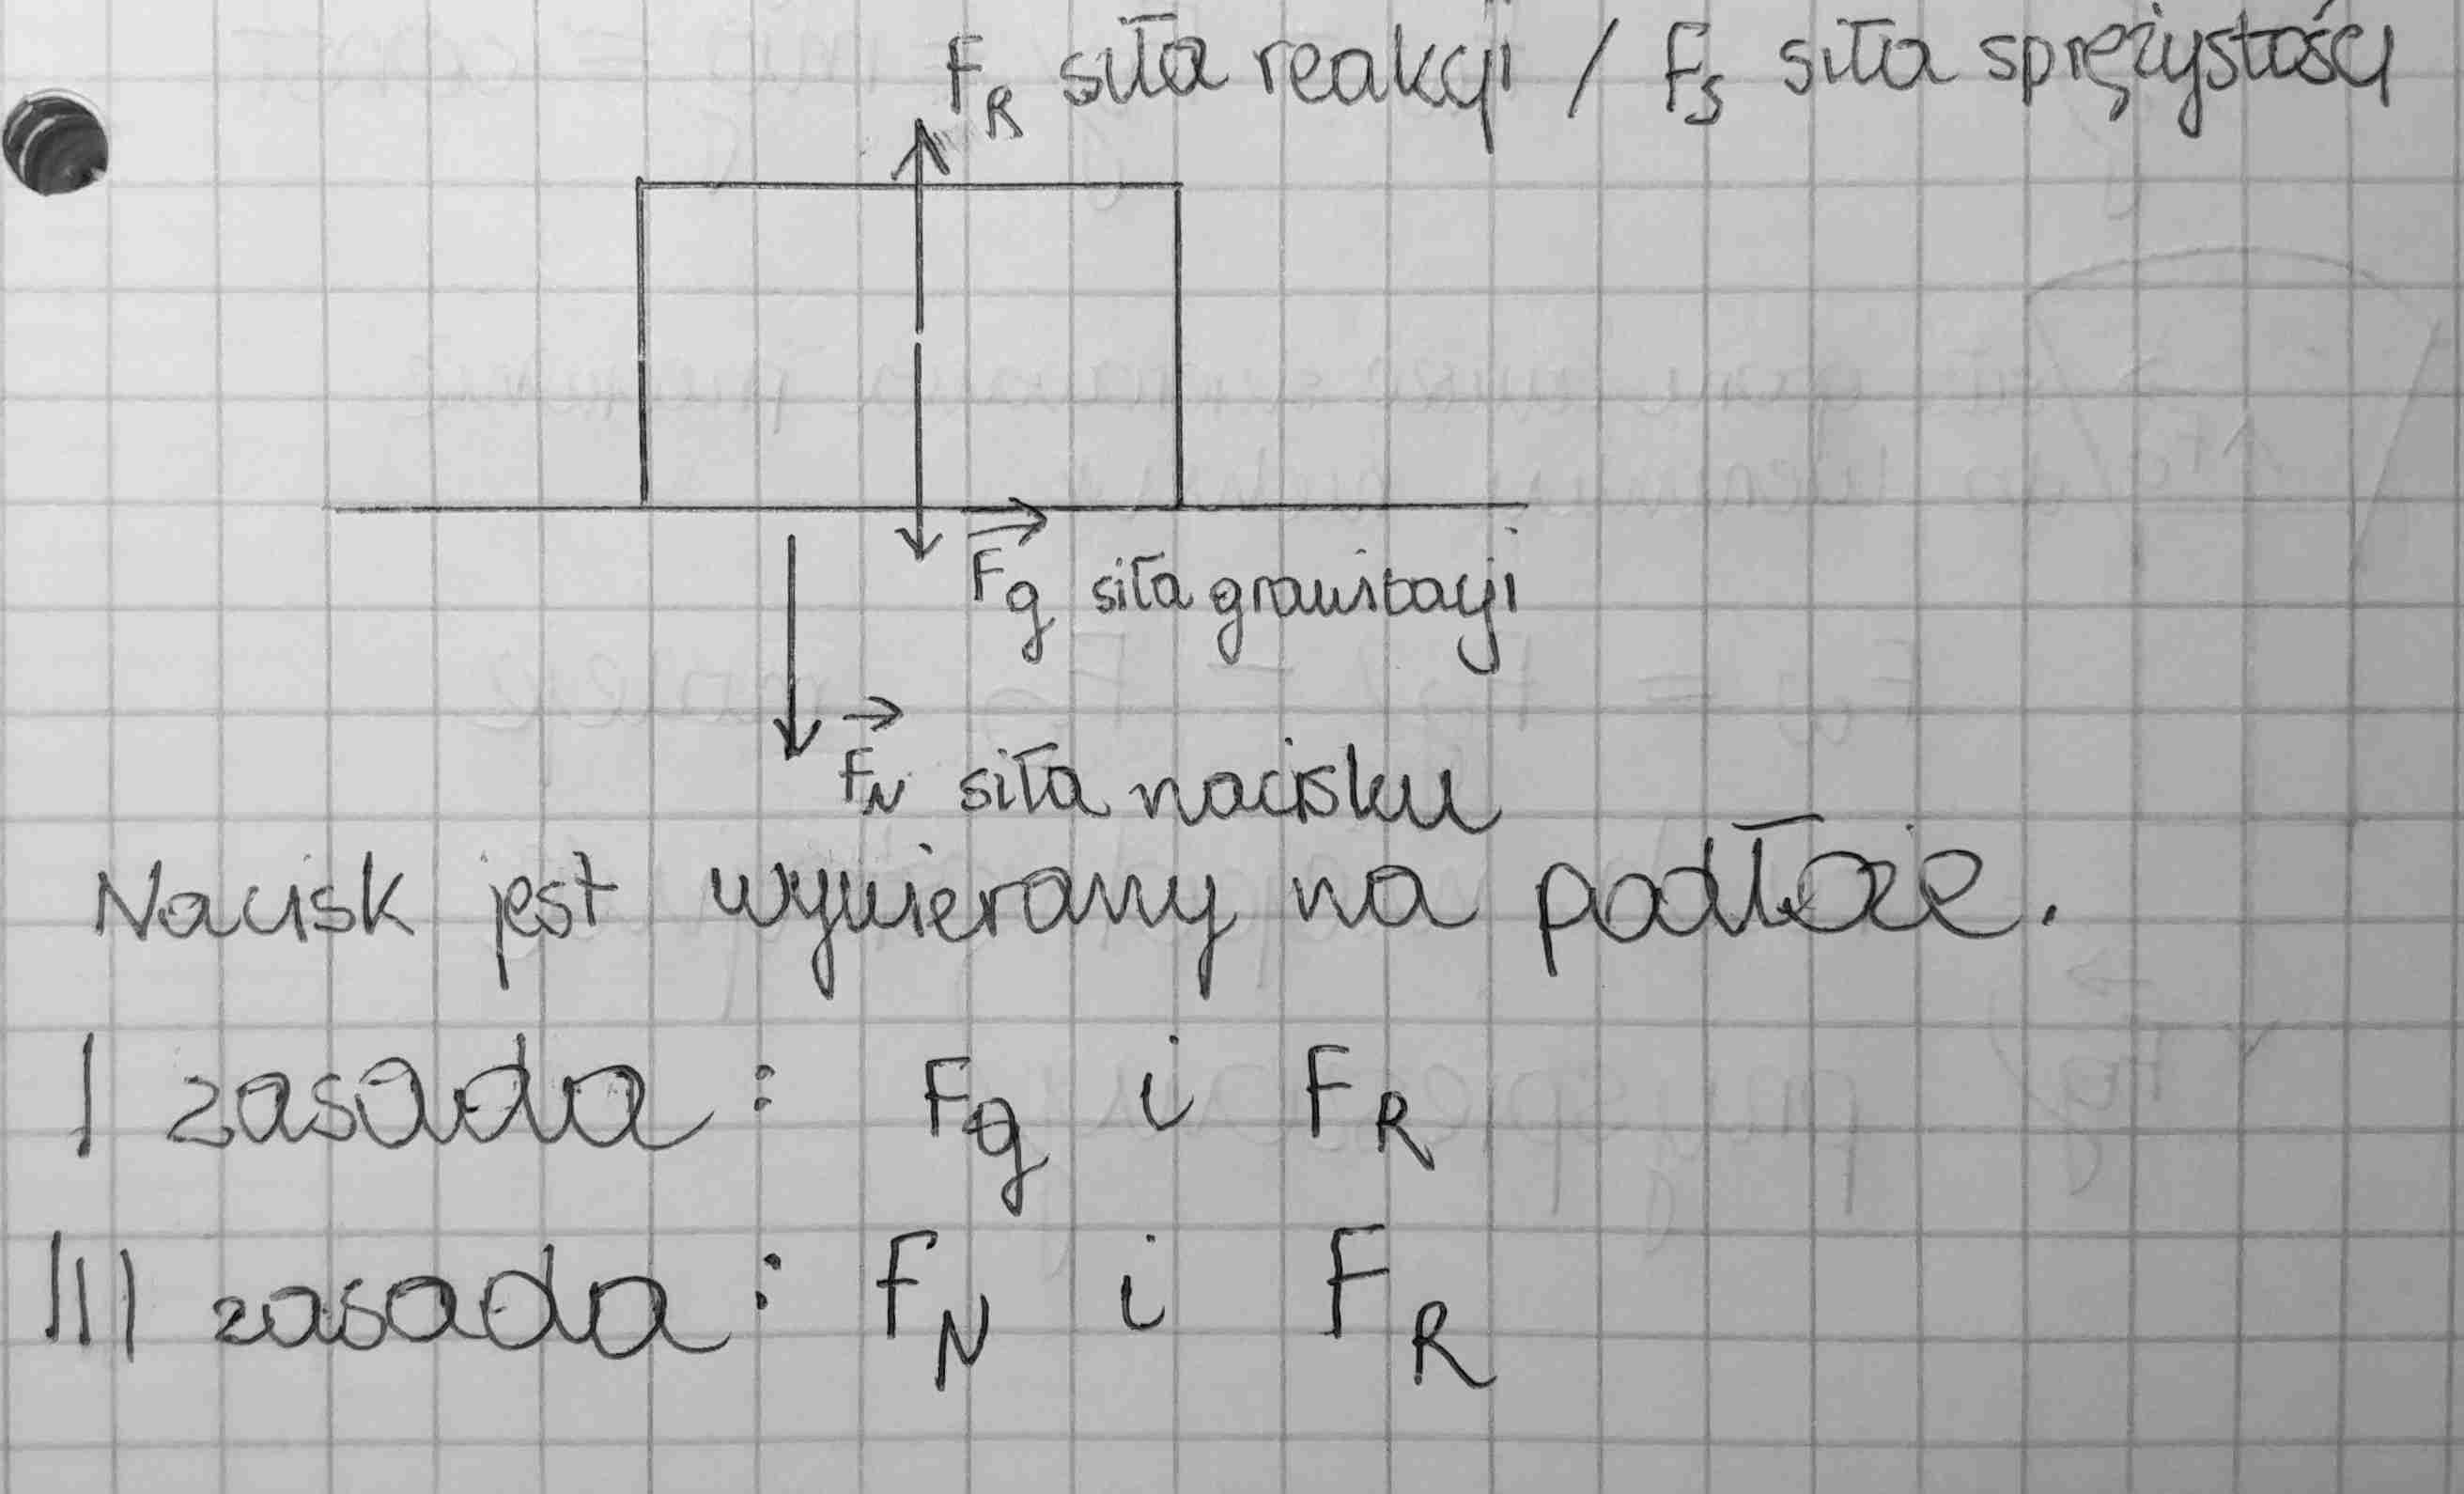 F_R siła reakcji / F_S siła sprężystości
F_g siła grawitacji
F_N siła nacisku
Nacisk jest wywierany na podłoże.
I zasada : F_g i F_R
III zasada : F_N i F_R